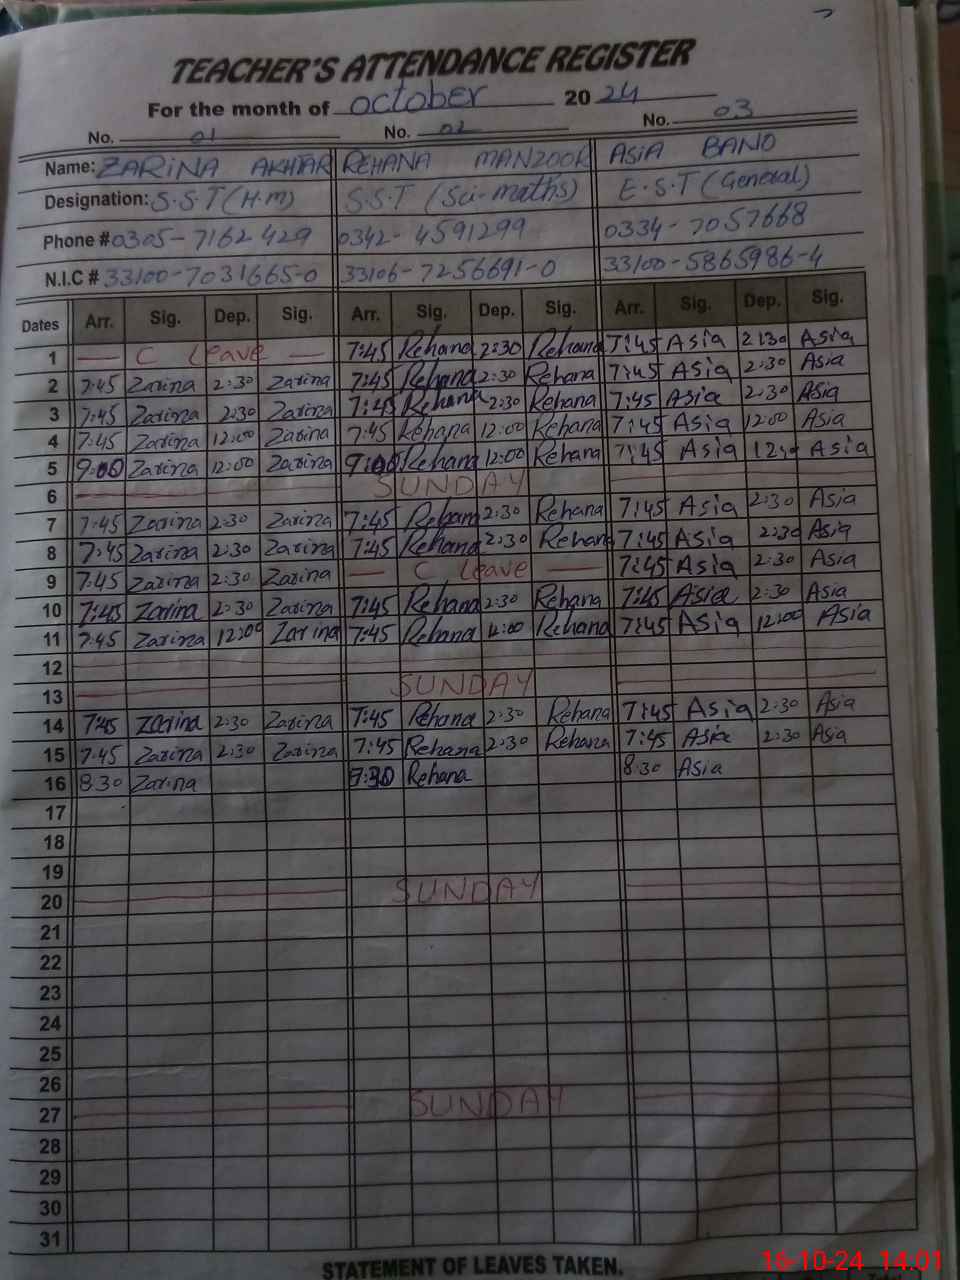 TEACHER'S ATTENDANCE REGISTER
For the month of October 2024
No. 01 No. 02 No. 03
Name: ZARINA AKHTAR REHANA MANZOOR ASIA BANO
Designation: S.S.T (H.M) S.S.T (Sci-maths) E.S.T (General)
Phone # 0305-7162429 0342-4591299 0334-7057668
N.I.C # 33100-7031665-0 33106-7256691-0 33100-5865986-4
Dates Arr. Sig. Dep. Sig. Arr. Sig. Dep. Sig. Arr. Sig. Dep. Sig.
1 C Leave 7:45 Rehana 2:30 Rehana 7:45 Asia 2:30 Asia
2 7:45 Zarina 2:30 Zarina 7:45 Rehana 2:30 Rehana 7:45 Asia 2:30 Asia
3 7:45 Zarina 2:30 Zarina 7:45 Rehana 2:30 Rehana 7:45 Asia 2:30 Asia
4 7:45 Zarina 12:00 Zarina 7:45 Rehana 12:00 Rehana 7:45 Asia 12:00 Asia
5 9:00 Zarina 12:00 Zarina 9:00 Rehana 12:00 Rehana 7:45 Asia Asia
6 SUNDAY
7 7:45 Zarina 2:30 Zarina 7:45 Rehana 2:30 Rehana 7:45 Asia 2:30 Asia
8 7:45 Zarina 2:30 Zarina 7:45 Rehana 2:30 Rehana 7:45 Asia 2:30 Asia
9 7:45 Zarina 2:30 Zarina C Leave 7:45 Asia 2:30 Asia
10 7:45 Zarina 2:30 Zarina 7:45 Rehana 2:30 Rehana 7:45 Asia 2:30 Asia
11 7:45 Zarina 12:00 Zarina 7:45 Rehana 12:00 Rehana 7:45 Asia 12:00 Asia
12
13 SUNDAY
14 7:45 Zarina 2:30 Zarina 7:45 Rehana 2:30 Rehana 7:45 Asia 2:30 Asia
15 7:45 Zarina 2:30 Zarina 7:45 Rehana 2:30 Rehana 7:45 Asia 2:30 Asia
16 8:30 Zarina Rehana 8:30 Asia
17
18
19
20 SUNDAY
21
22
23
24
25
26
27 SUNDAY
28
29
30
31
STATEMENT OF LEAVES TAKEN.
16-10-24 14:01